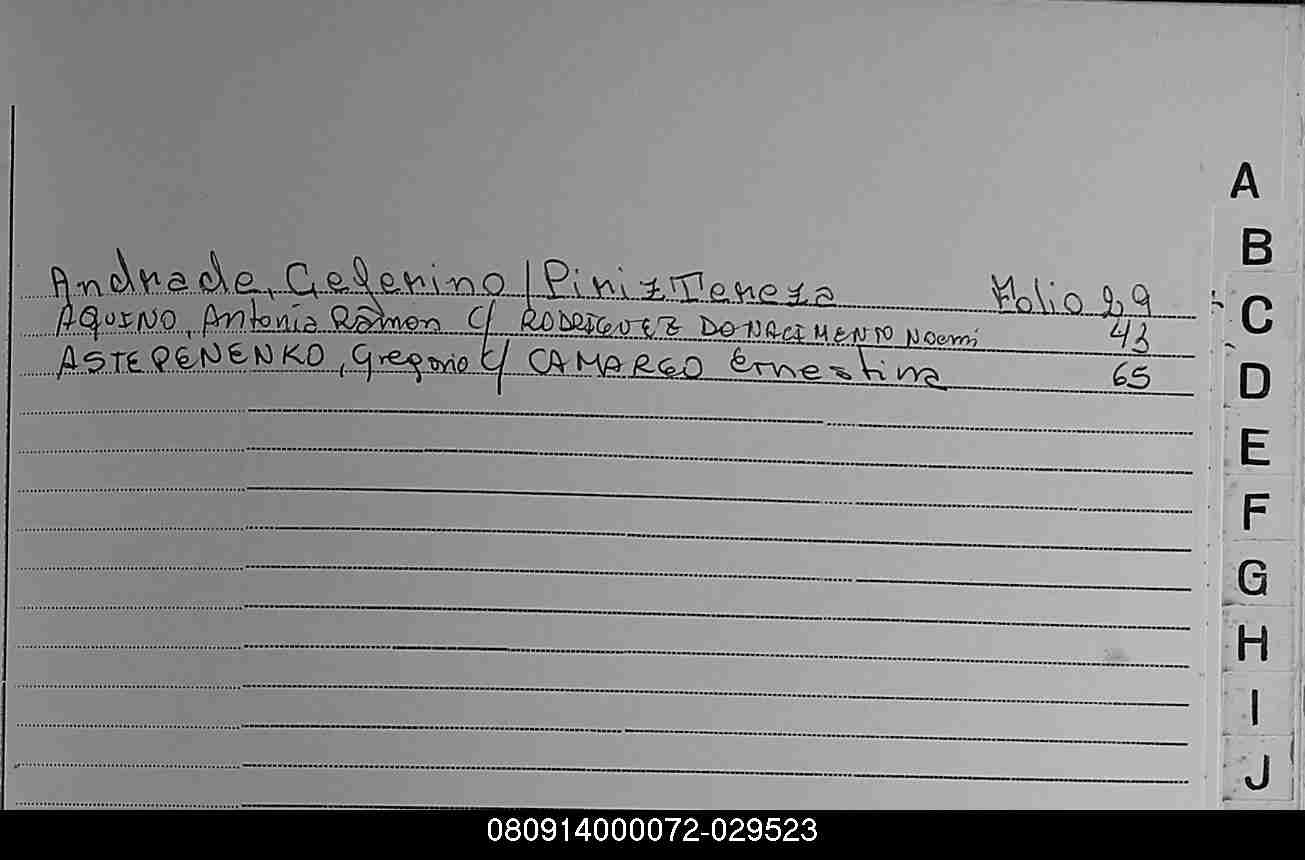 Andrade, Ceferino / Piriz Tereza Folio 29
AQUINO, Antonio Ramon C/ RODRIGUEZ DONACIMENTO Noemi 43
ASTEPENENKO, Gregorio C/ CAMARGO Ernestina 65
A
B
C
D
E
F
G
H
I
J
080914000072-029523